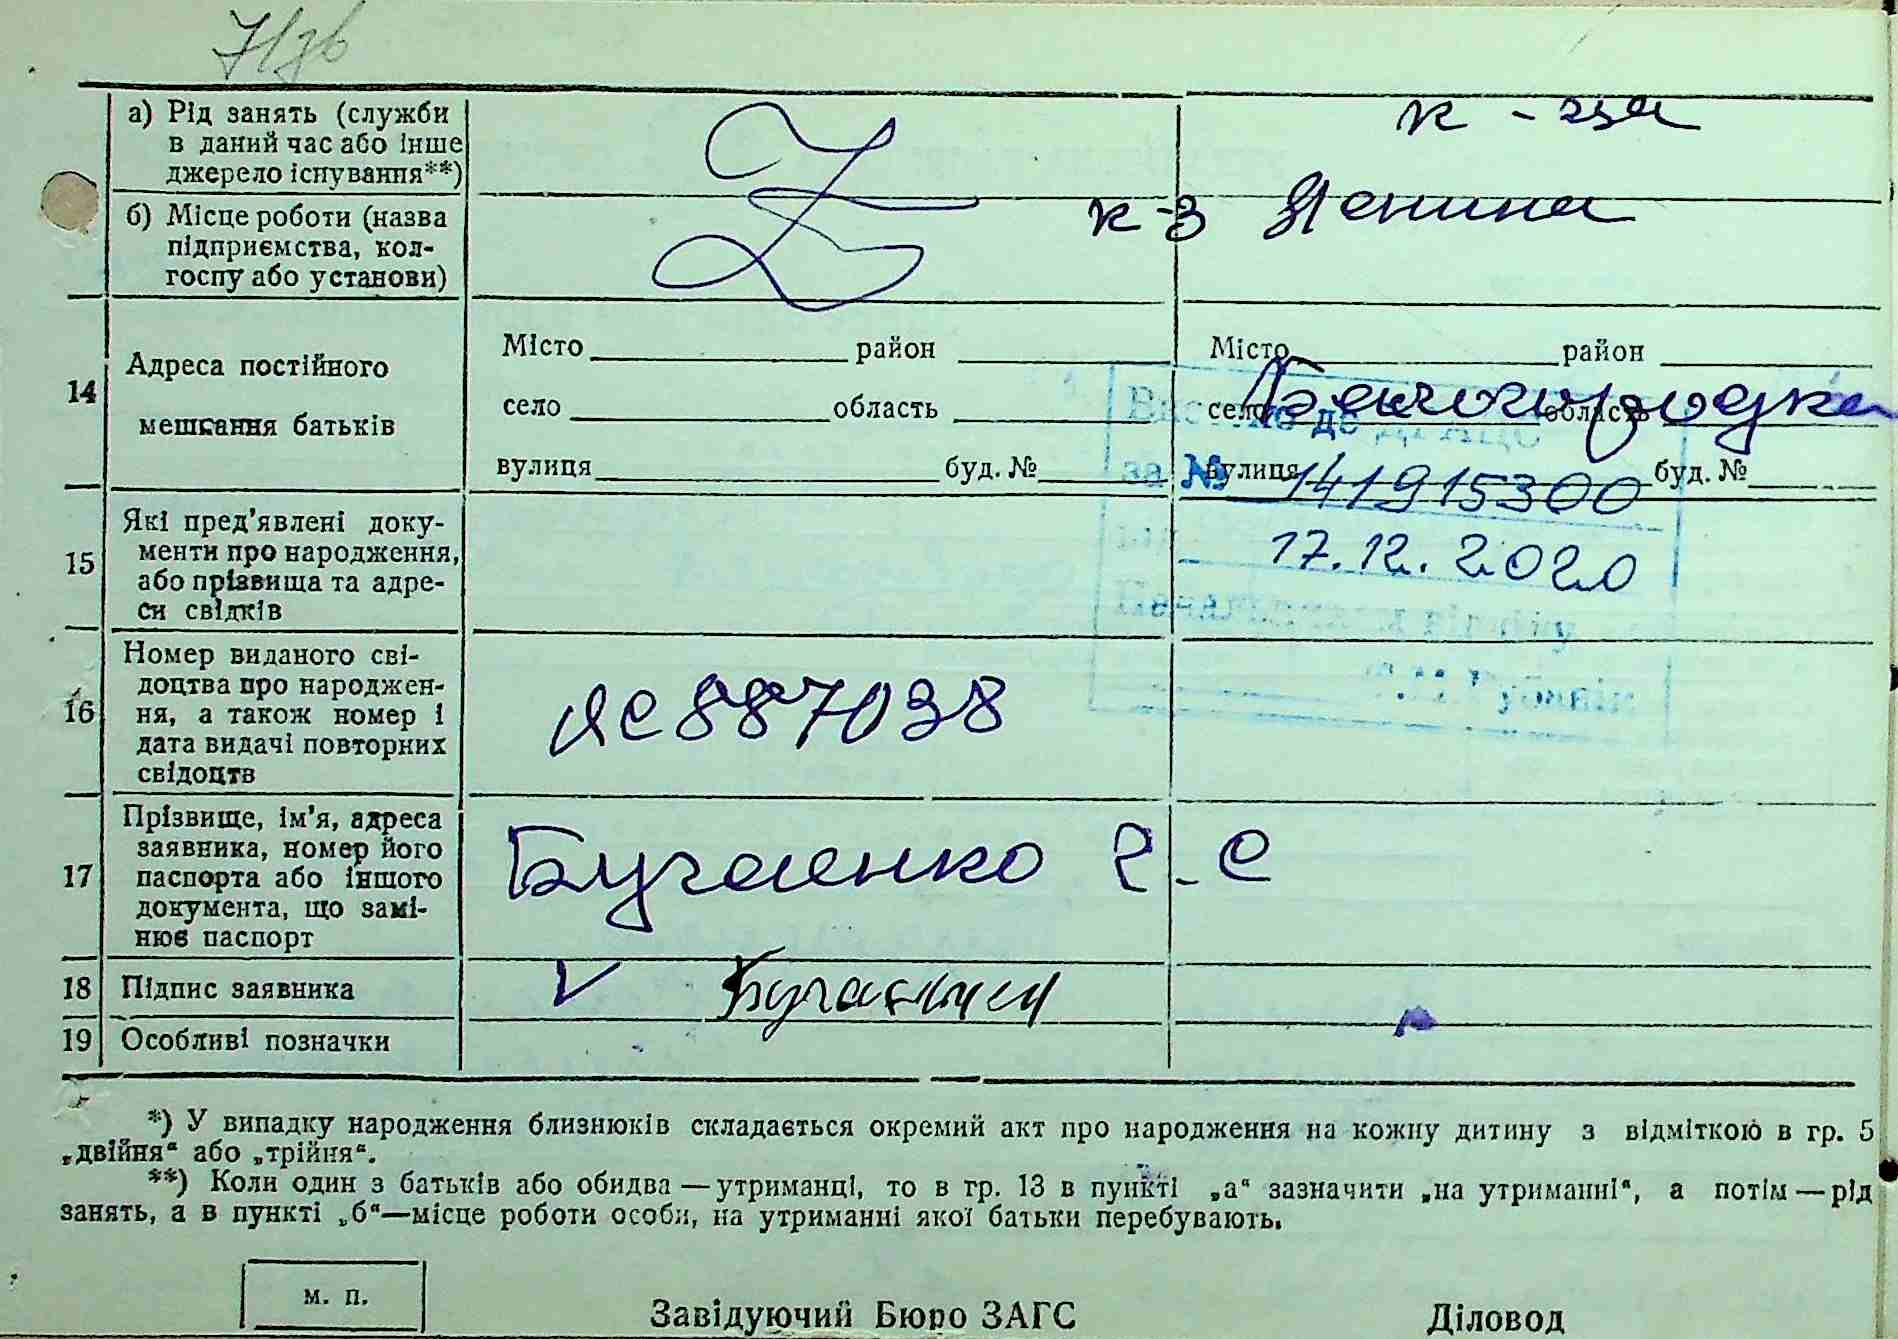 а) Рід занять (служби
в даний час або інше
джерело існування**)
к - зна
б) Місце роботи (назва
підприємства, кол-
госпу або установи)
к-з Ленина
14
Адреса постійного
мешкання батьків
Місто район
село область
вулиця буд. №
Місто район
село Білогородка область
вулиця буд. №
за № 141915300
17.12.2020
15
Які пред'явлені доку-
менти про народження,
або прізвища та адре-
си свідків
Начальник відділу
16
Номер виданого сві-
доцтва про народжен-
ня, а також номер і
дата видачі повторних
свідоцтв
ЯС 887038
17
Прізвище, ім'я, адреса
заявника, номер його
паспорта або іншого
документа, що замі-
нює паспорт
Бугаенко Г. С
18 Підпис заявника
19 Особливі позначки
*) У випадку народження близнюків складається окремий акт про народження на кожну дитину з відміткою в гр. 5
„двійня“ або „трійня“.
**) Коли один з батьків або обидва — утриманці, то в гр. 13 в пункті „а“ зазначити „на утриманні“, а потім — рід
занять, а в пункті „б“—місце роботи особи, на утриманні якої батьки перебувають.
м. п.
Завідуючий Бюро ЗАГС
Діловод